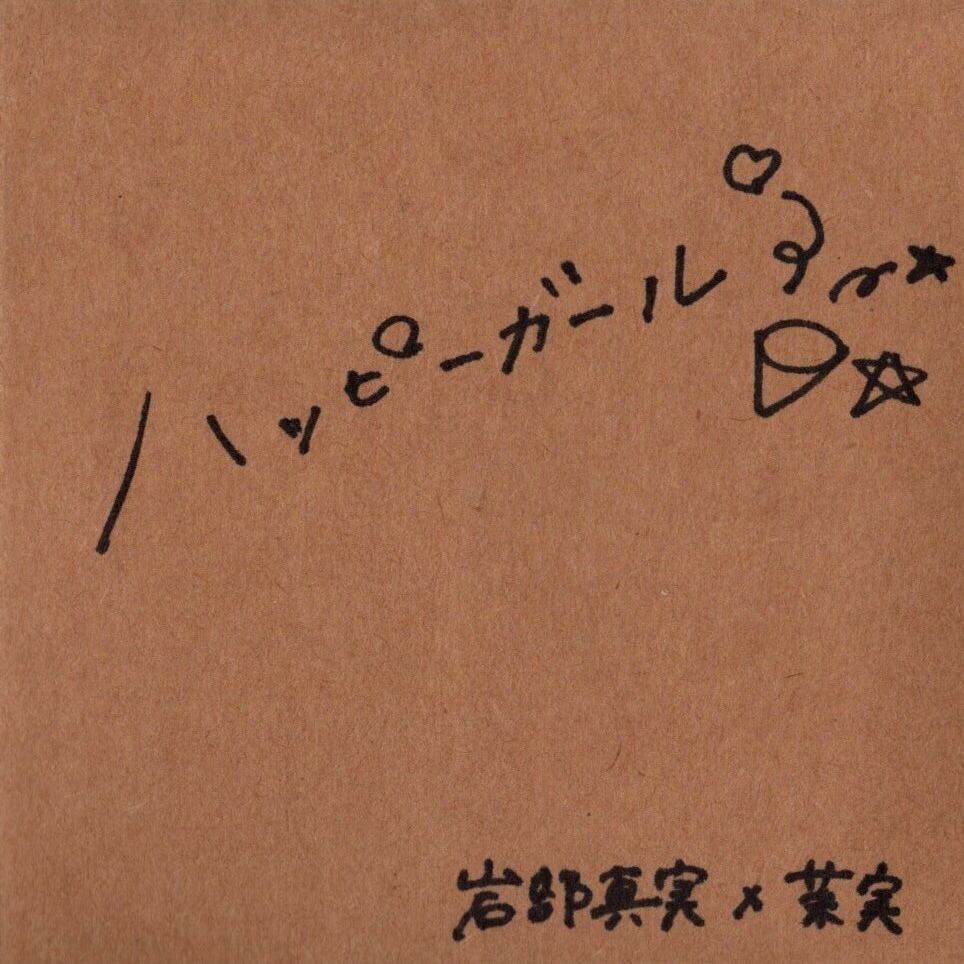 ハッピーガール
岩部真実×菜実